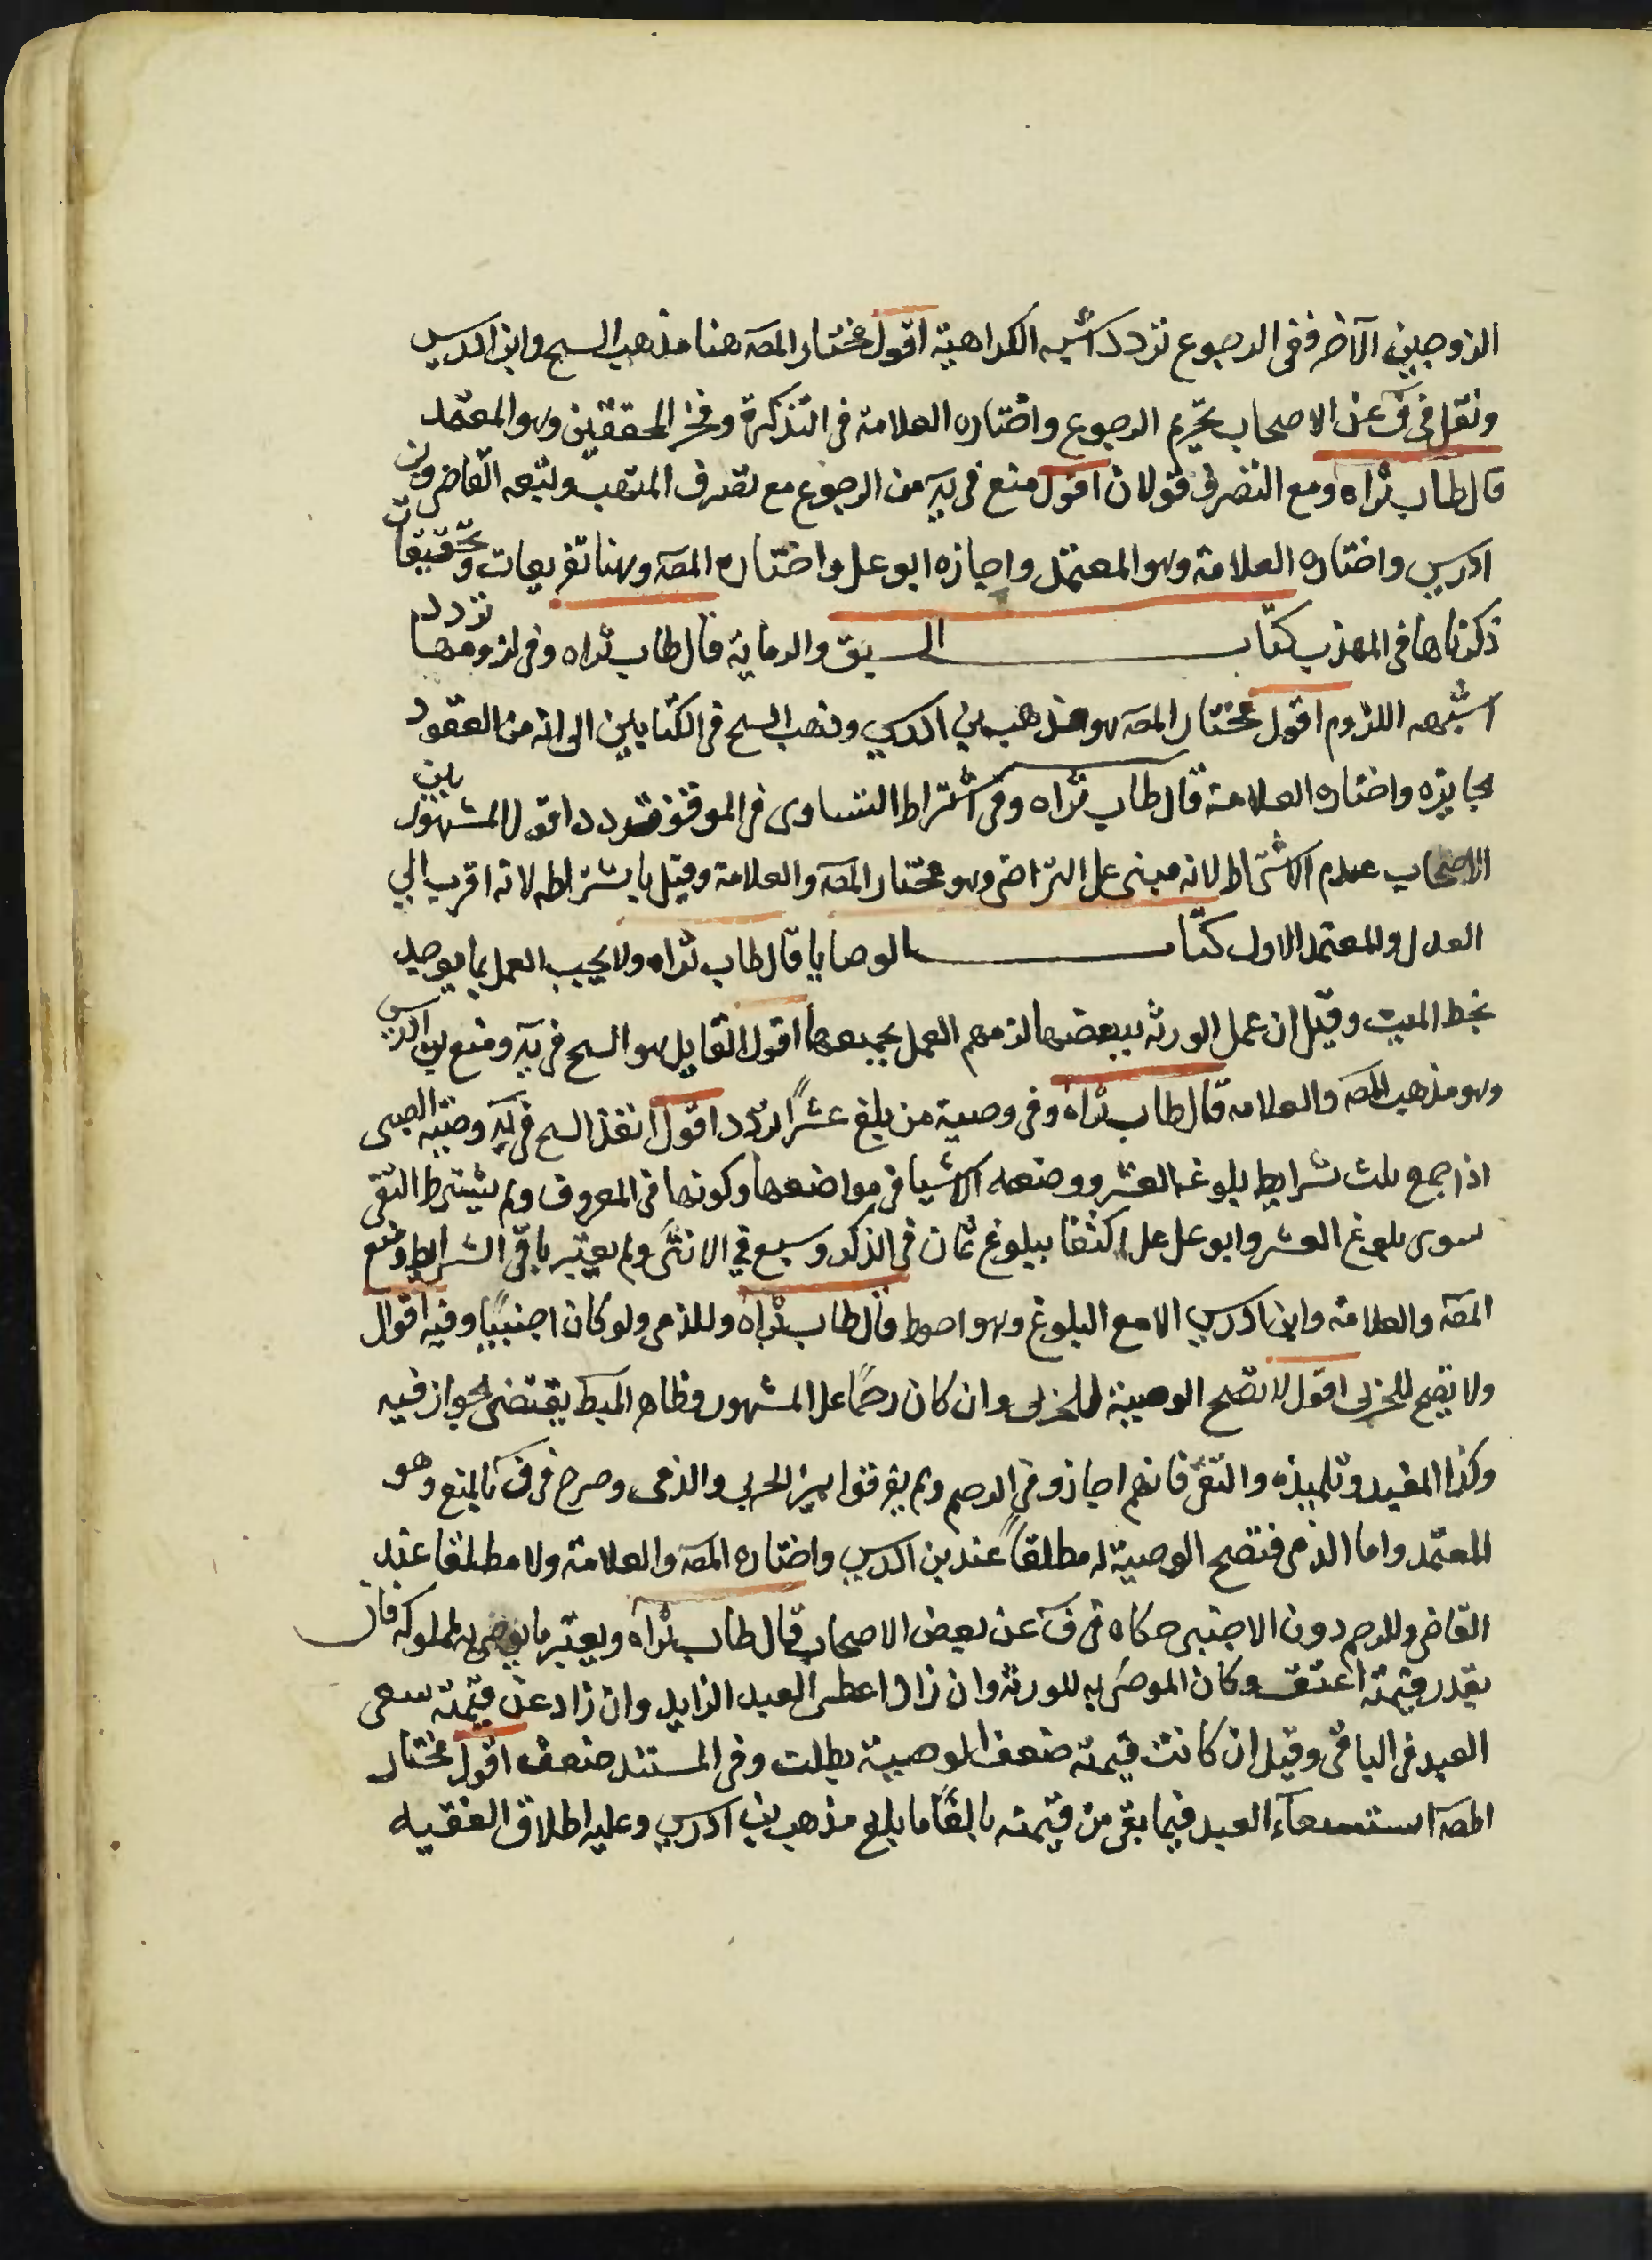 الزوجين الآخر ففى الرجوع تردد اشبه الكراهية اقول مختار المصه هنا مذهب الشيخ وابن ادريس
ونقل فى ف عن الاصحاب تحريم الرجوع واختاره العلامة فى التذكرة وفخر المحققين وهو المعتمد
قال طاب ثراه ومع التصرف قولان اقول منع فى يه من الرجوع مع تصرف المتهب وتبعه القاضى وبن
ادريس واختاره العلامة وهو المعتمد واجازه ابو على واختاره المصه وهنا تفريعات وتحقيقات
ذكرناها فى المهذب كتاب السبق والرماية قال طاب ثراه وفى لزومها تردد
اشبهه اللزوم اقول مختار المصه هو مذهب بن ادريس وذهب الشيخ فى الكتابين الى انه من العقود
الجايزه واختاره العلامة قال طاب ثراه وفى اشتراط التساوى فى الموقف تردد اقول المشهور بين
الاصحاب عدم الاشتراط لانه مبنى على التراضى وهو مختار المصه والعلامة وقيل باشتراطه لانه اقرب الى
العدل والمعتمد الاول كتاب الوصايا قال طاب ثراه ولا يجب العمل بما يوجد
بخط الميت وقيل ان عمل الورثه ببعضها لزمهم العمل بجميعها اقول القايل هو الشيخ فى يه ومنع بن ادريس
وهو مذهب المصه والعلامه قال طاب ثراه وفى وصية من بلغ عشرًا تردد اقول انفذ الشيخ فى يه وصية الصبى
اذا جمع ثلث شرايط بلوغه العشر ووضعه الاشيا فى مواضعها وكونها فى المعروف ولم يشترط التقى
سوى بلوغ العشر وابو على على اكتفا ببلوغ ثمان فى الذكر وسبع فى الانثى ولم يعتبر باقى الشرايط ومنع
المصه والعلامة وابن ادريس الا مع البلوغ وهو احوط قال طاب ثراه وللذمى ولو كان اجنبيًا وفيه اقوال
ولا تصح للحربى اقول لا تصح الوصية للحربى وان كان رحمًا على المشهور وظاهر المبسط يقتضى الجواز فيه
وكذا المفيد وتلميذه والتقى فانهم اجازوا فى الرحم ولم يفرقوا بين الحربى والذمى وصرح فى ف بالمنع وهو
المعتمد واما الذمى فتصح الوصية له مطلقًا عند بن ادريس واختاره المصه والعلامة ولا مطلقا عند
القاضى وللرحم دون الاجنبى حكاه فى ف عن بعض الاصحاب قال طاب ثراه ويعتبر ما يوصى به لمملوكه فان
بقدر قيمته اعتق وكان الموصى به للورثة وان زاد اعطى العبد الزايد وان زاد عن قيمته سعى
العبد فى الباقى وقيل ان كانت قيمته ضعف الوصية بطلت وفى المستند ضعف اقول مختار
المصه استسعاء العبد فيما بقى من قيمته بالغًا ما بلغ مذهب بن ادريس وعليه اطلاق الفقيه